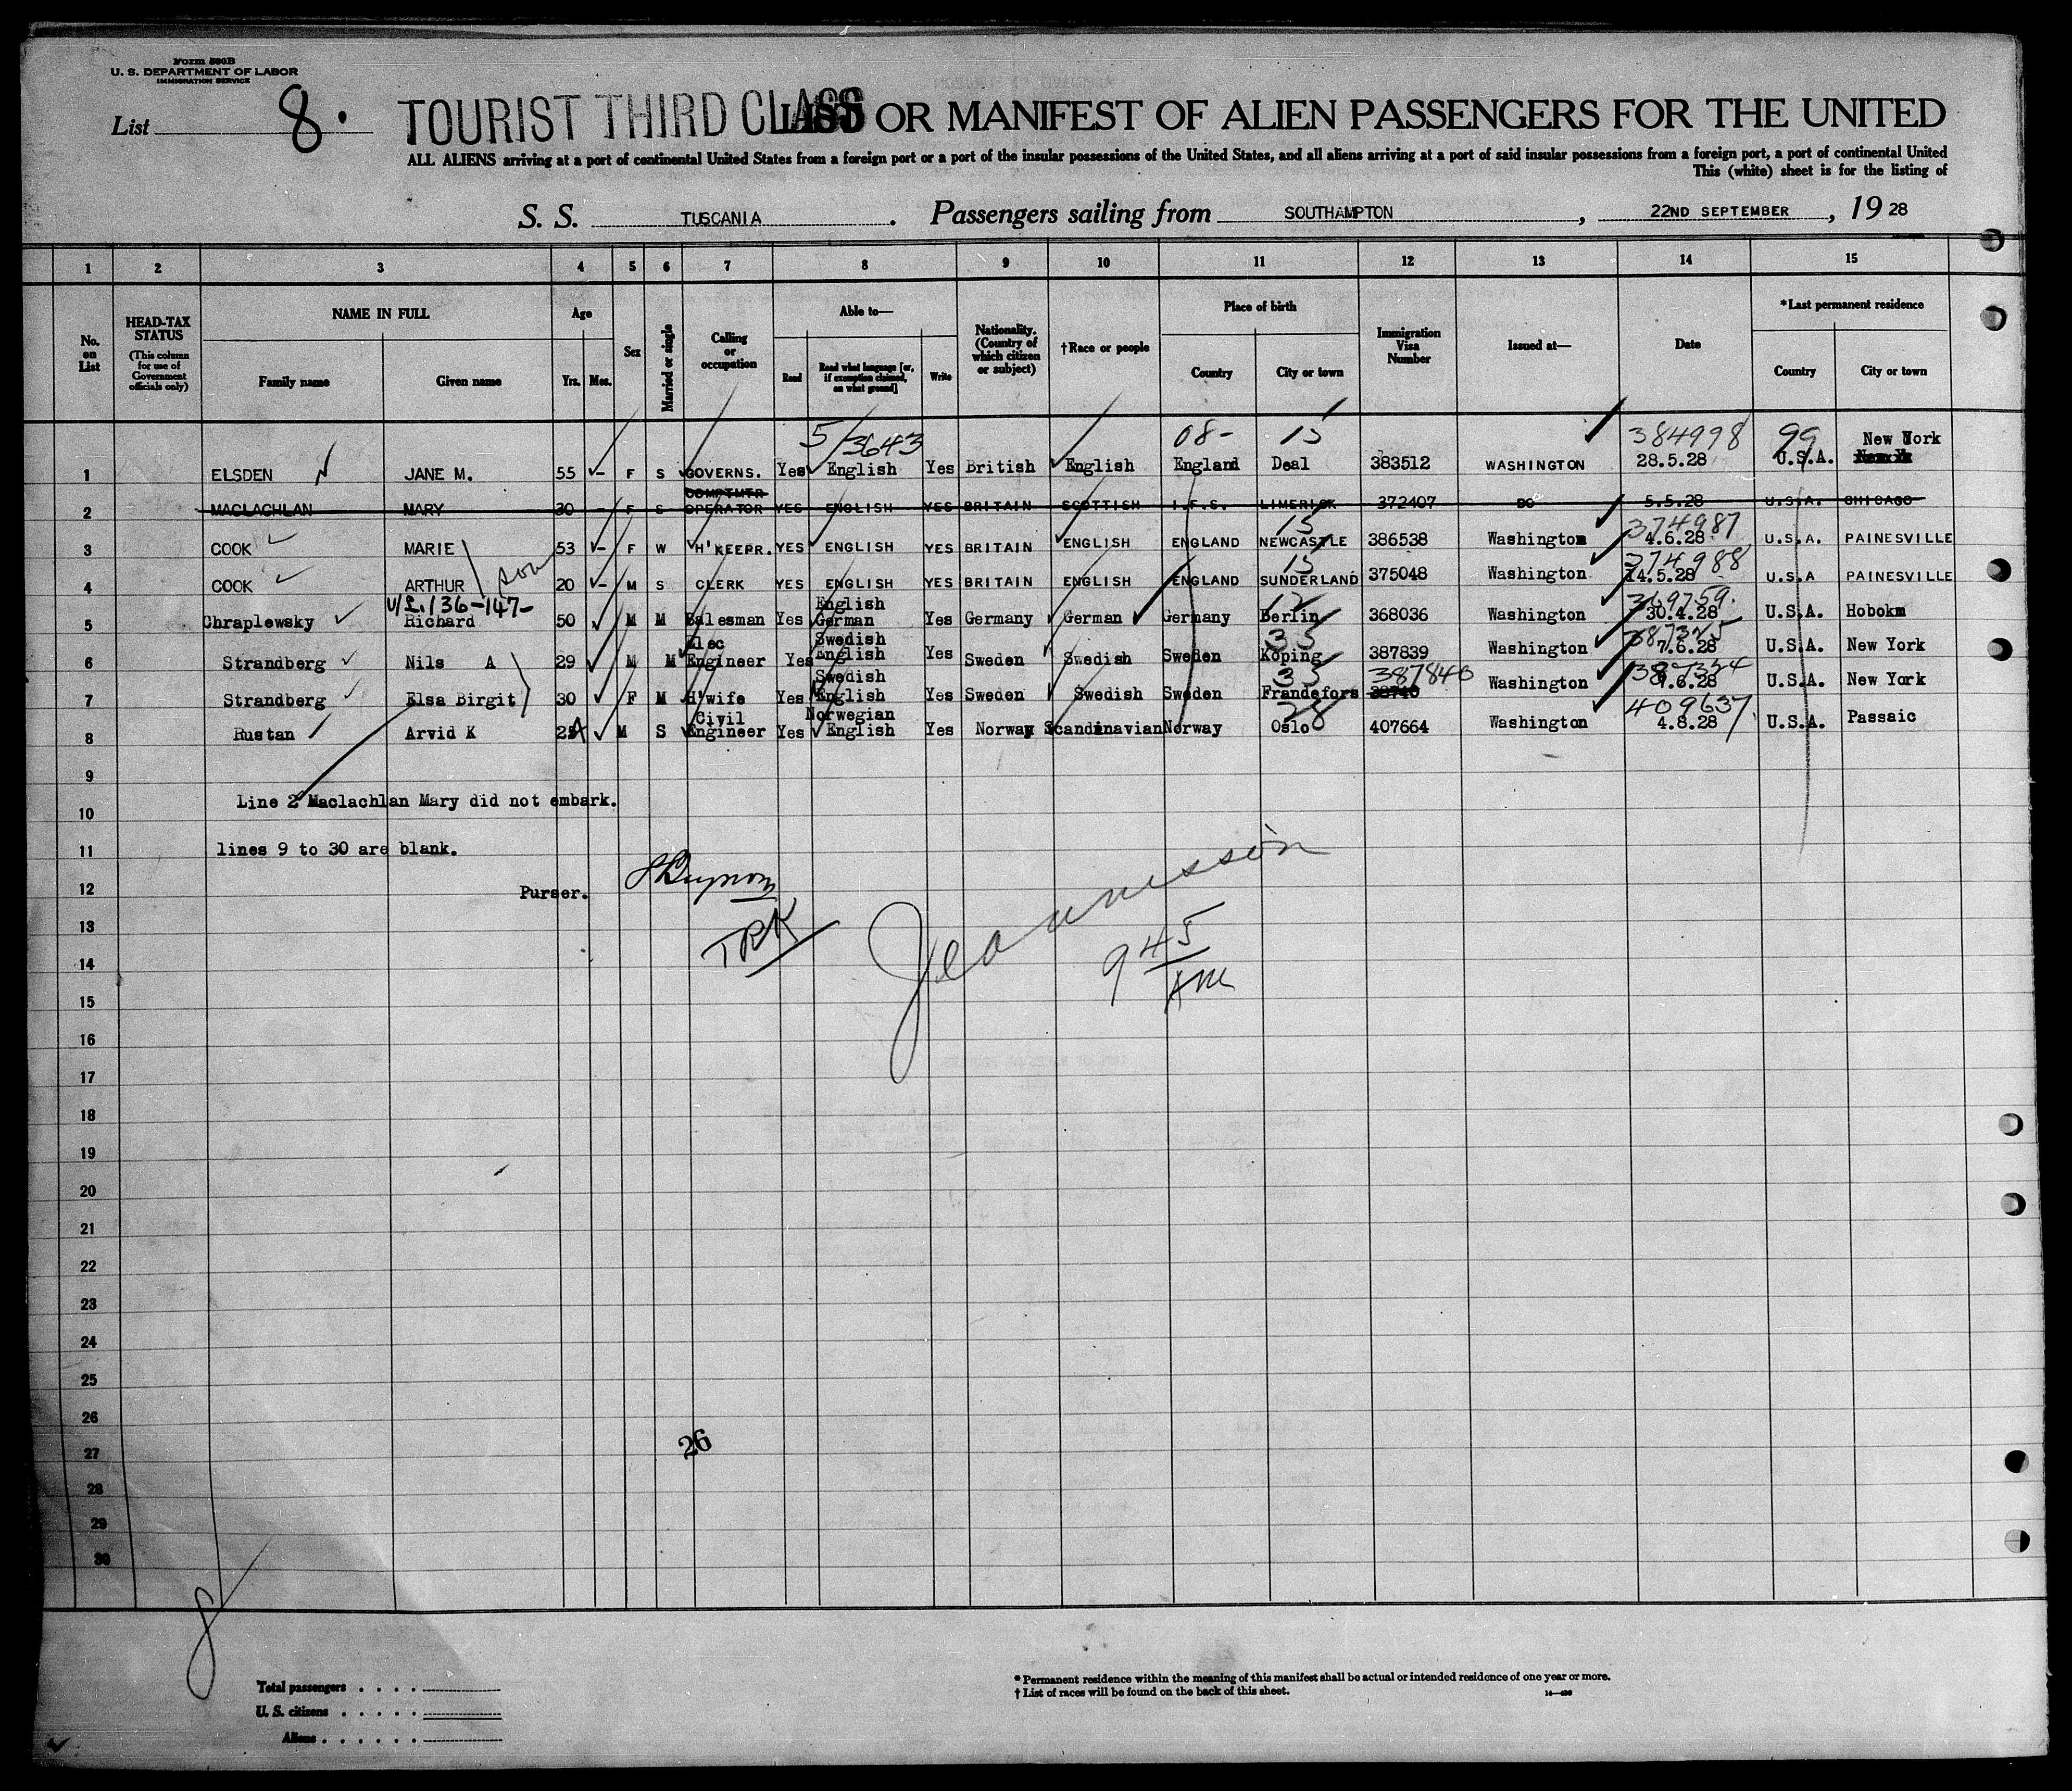 Form 500B
U. S. DEPARTMENT OF LABOR
IMMIGRATION SERVICE
List 8. TOURIST THIRD CLASS OR MANIFEST OF ALIEN PASSENGERS FOR THE UNITED
ALL ALIENS arriving at a port of continental United States from a foreign port or a port of the insular possessions of the United States, and all aliens arriving at a port of said insular possessions from a foreign port, a port of continental United
This (white) sheet is for the listing of
S. S. TUSCANIA. Passengers sailing from SOUTHAMPTON, 22ND SEPTEMBER, 1928
1 2 3 4 5 6 7 8 9 10 11 12 13 14 15
No. on List
HEAD-TAX STATUS (This column for use of Government officials only)
NAME IN FULL
Family name Given name
Age
Yrs. Mos.
Sex
Married or single
Calling or occupation
Able to—
Read Read what language [or, if exemption claimed, on what ground] Write
Nationality. (Country of which citizen or subject)
†Race or people
Place of birth
Country City or town
Immigration Visa Number
Issued at—
Date
*Last permanent residence
Country City or town
5/3643 08- 15 384998 99 New York
1 ELSDEN JANE M. 55 - F S GOVERNS. Yes English Yes British English England Deal 383512 WASHINGTON 28.5.28 U.S.A.
COMPTMTR
2 MACLACHLAN MARY 30 - F S OPERATOR YES ENGLISH YES BRITAIN SCOTTISH I.F.S. LIMERICK 372407 DO 5.5.28 U.S.A. CHICAGO
15 374987
3 COOK MARIE 53 - F W H'KEEPR. YES ENGLISH YES BRITAIN ENGLISH ENGLAND NEWCASTLE 386538 Washington 4.6.28 U.S.A. PAINESVILLE
son 15 374988
4 COOK ARTHUR 20 - M S CLERK YES ENGLISH YES BRITAIN ENGLISH ENGLAND SUNDERLAND 375048 Washington 14.5.28 U.S.A PAINESVILLE
136-147- English 12 369759
5 Chraplewsky Richard 50 M M Salesman Yes German Yes Germany German Germany Berlin 368036 Washington 30.4.28 U.S.A. Hoboken
Elec Swedish 35
6 Strandberg Nils A 29 M M Engineer Yes English Yes Sweden Swedish Sweden Koping 387839 Washington 7.6.28 U.S.A. New York
Swedish 35 387840
7 Strandberg Elsa Birgit 30 F M H'wife Yes English Yes Sweden Swedish Sweden Frandefors 38740 Washington 7.6.28 U.S.A. New York
Civil Norwegian 28 409637
8 Rustan Arvid K M S Engineer Yes English Yes Norway Scandinavian Norway Oslo 407664 Washington 4.8.28 U.S.A. Passaic
9
10 Line 2 Maclachlan Mary did not embark.
11 lines 9 to 30 are blank.
12 Purser.
13
14 9 45 AM
15
16
17
18
19
20
21
22
23
24
25
26
27 26
28
29
30
8
Total passengers
U. S. citizens
Aliens
* Permanent residence within the meaning of this manifest shall be actual or intended residence of one year or more.
† List of races will be found on the back of this sheet.